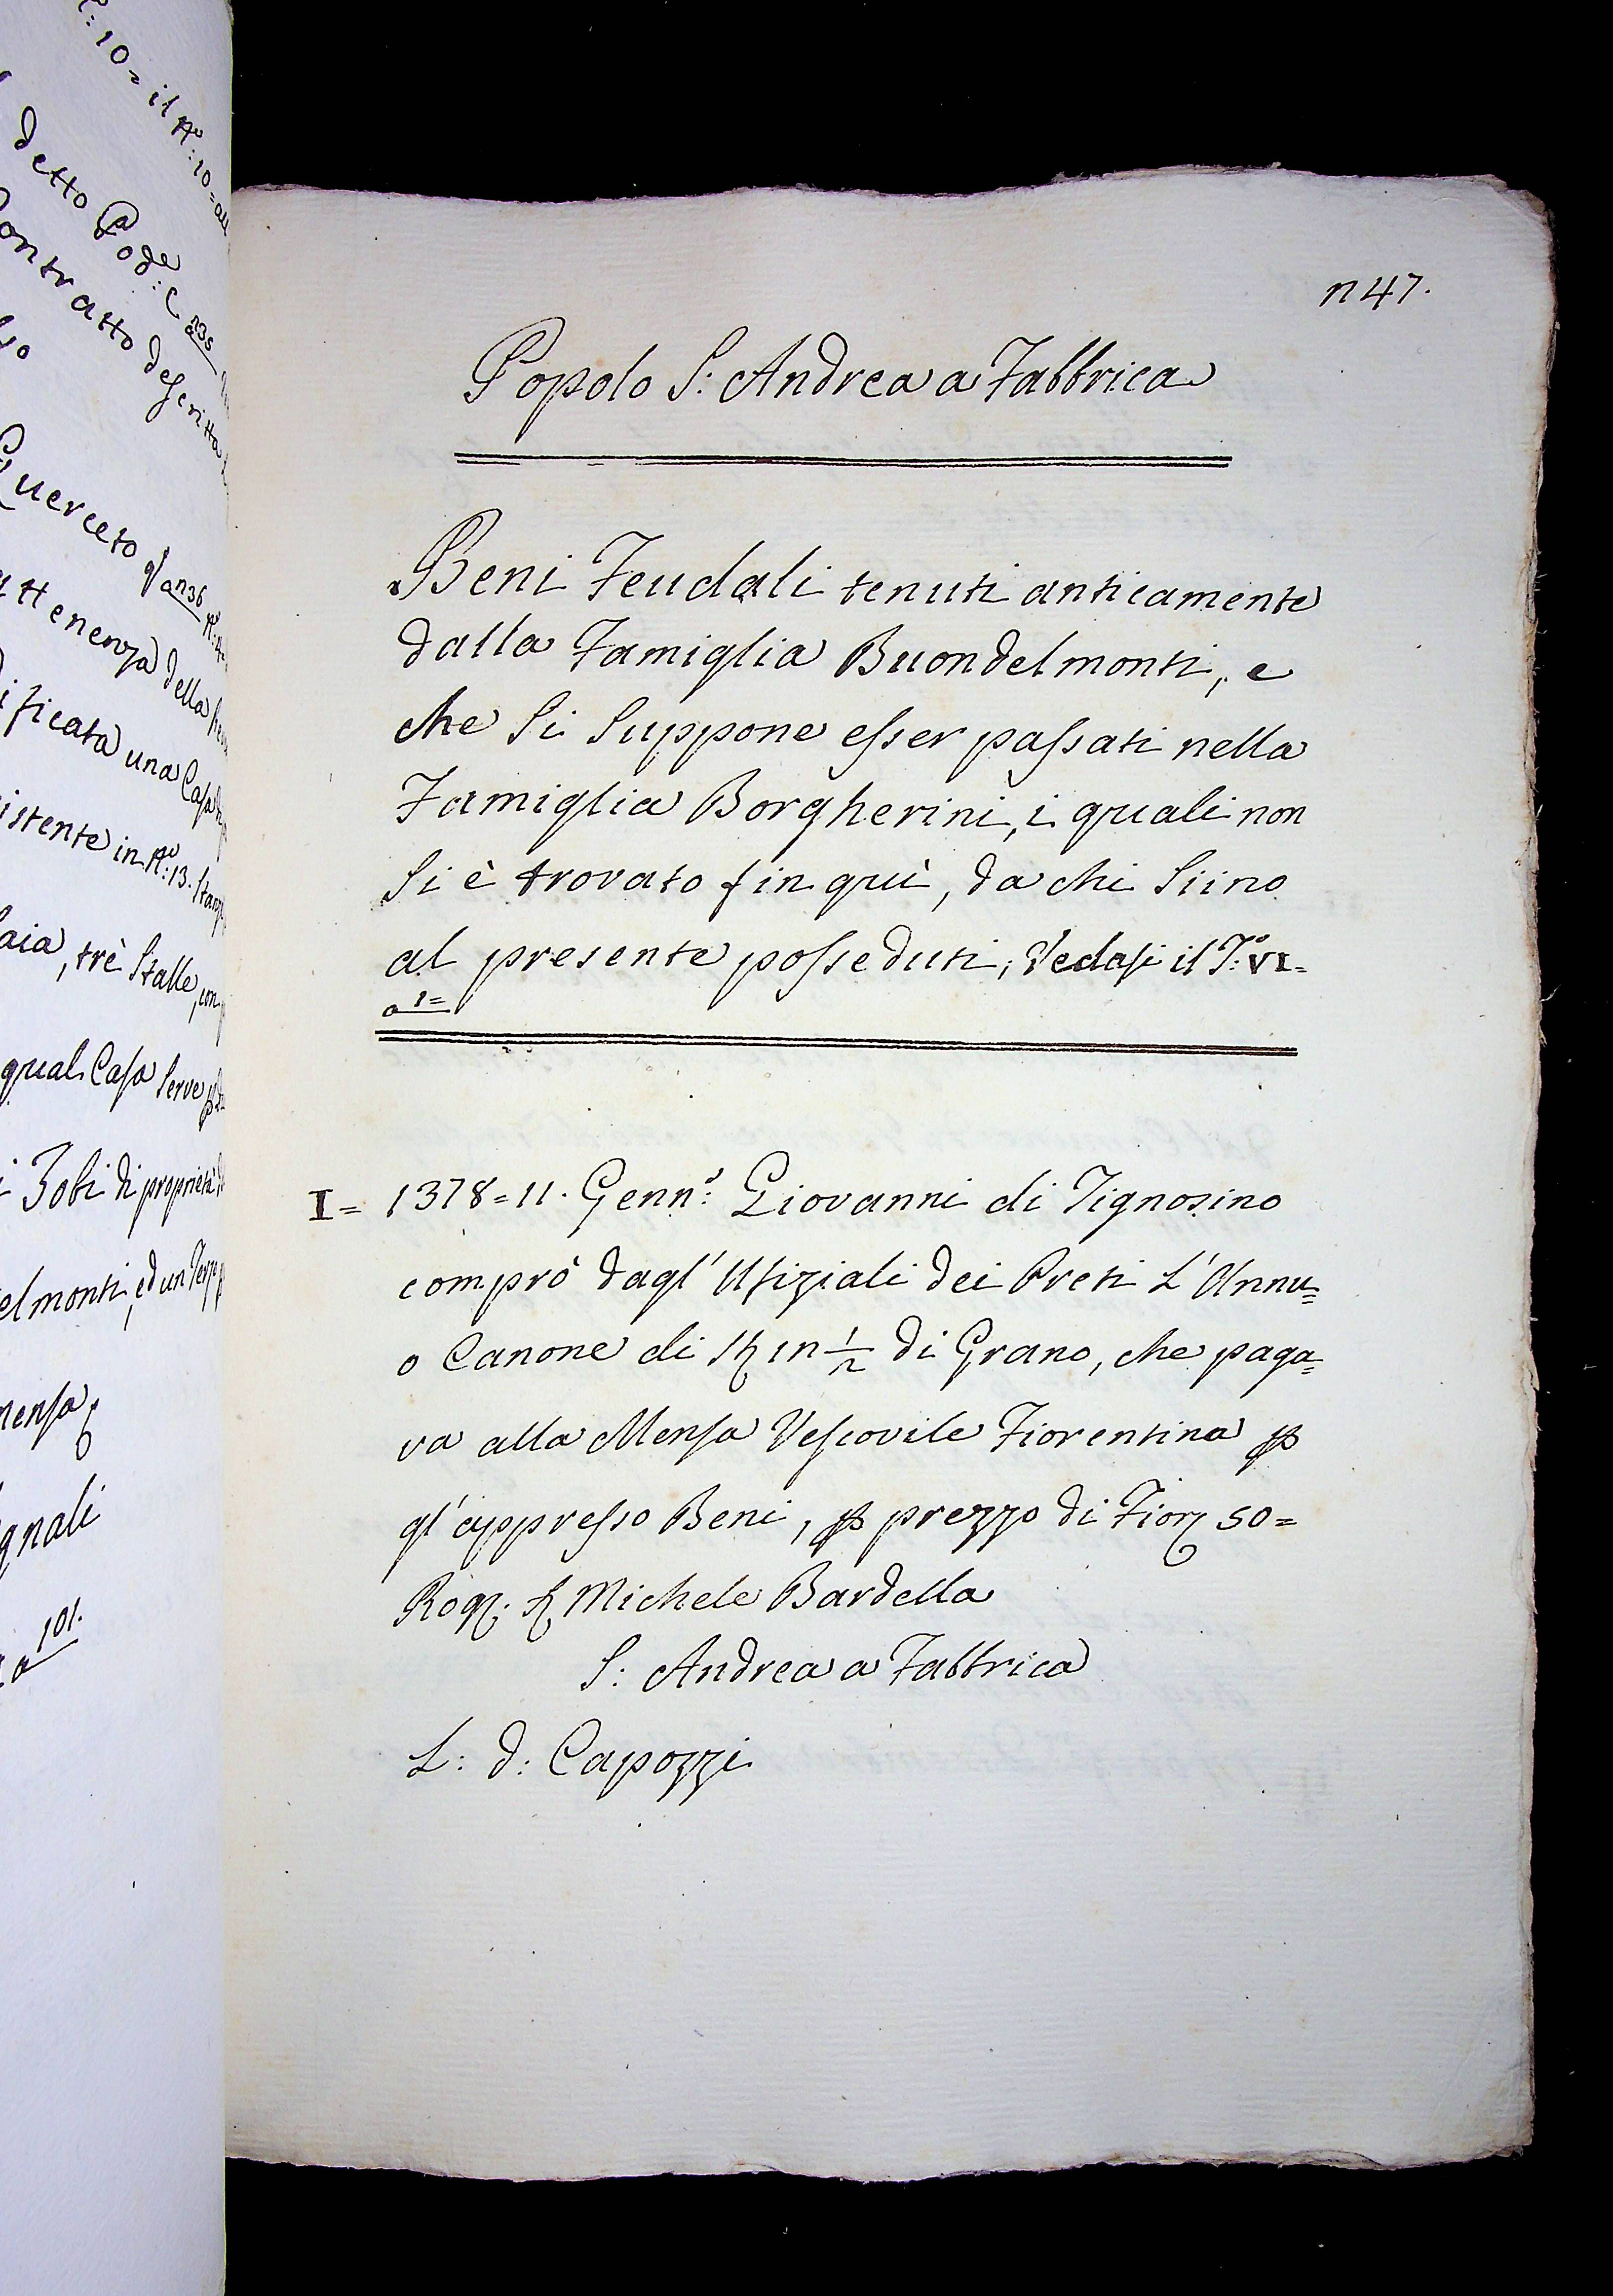 : 10 = il N.º: 10 =
detto Pod.e:
ontratto descritto
uerceto
attenenza della
ificata una Casa
istente in N.º: 13. Stanz
aia, trè Stalle, con
qual Casa serve p
i Zobi di proprietà
elmonti, ed un
mensa
gnali
a 101.
247.
Popolo S: Andrea a Fabbrica
Beni Feudali tenuti anticamente
dalla Famiglia Buondelmonti, e
che si suppone esser passati nella
Famiglia Borgherini, i quali non
si è trovato fin quì, da chi siino
al presente posseduti; Vedasi il T.º: VI=
a 1=
I= 1378=11. Genn.º: Giovanni di Tignosino
comprò dagl' Ufiziali dei Preti L'Annu=
o Canone di St 12 1/2 di Grano, che paga=
va alla Mensa Vescovile Fiorentina p
gl'appresso Beni, p prezzo di Fior 50=
Rog. S. Michele Bardella
S: Andrea a Fabbrica
L: d: Capozzi